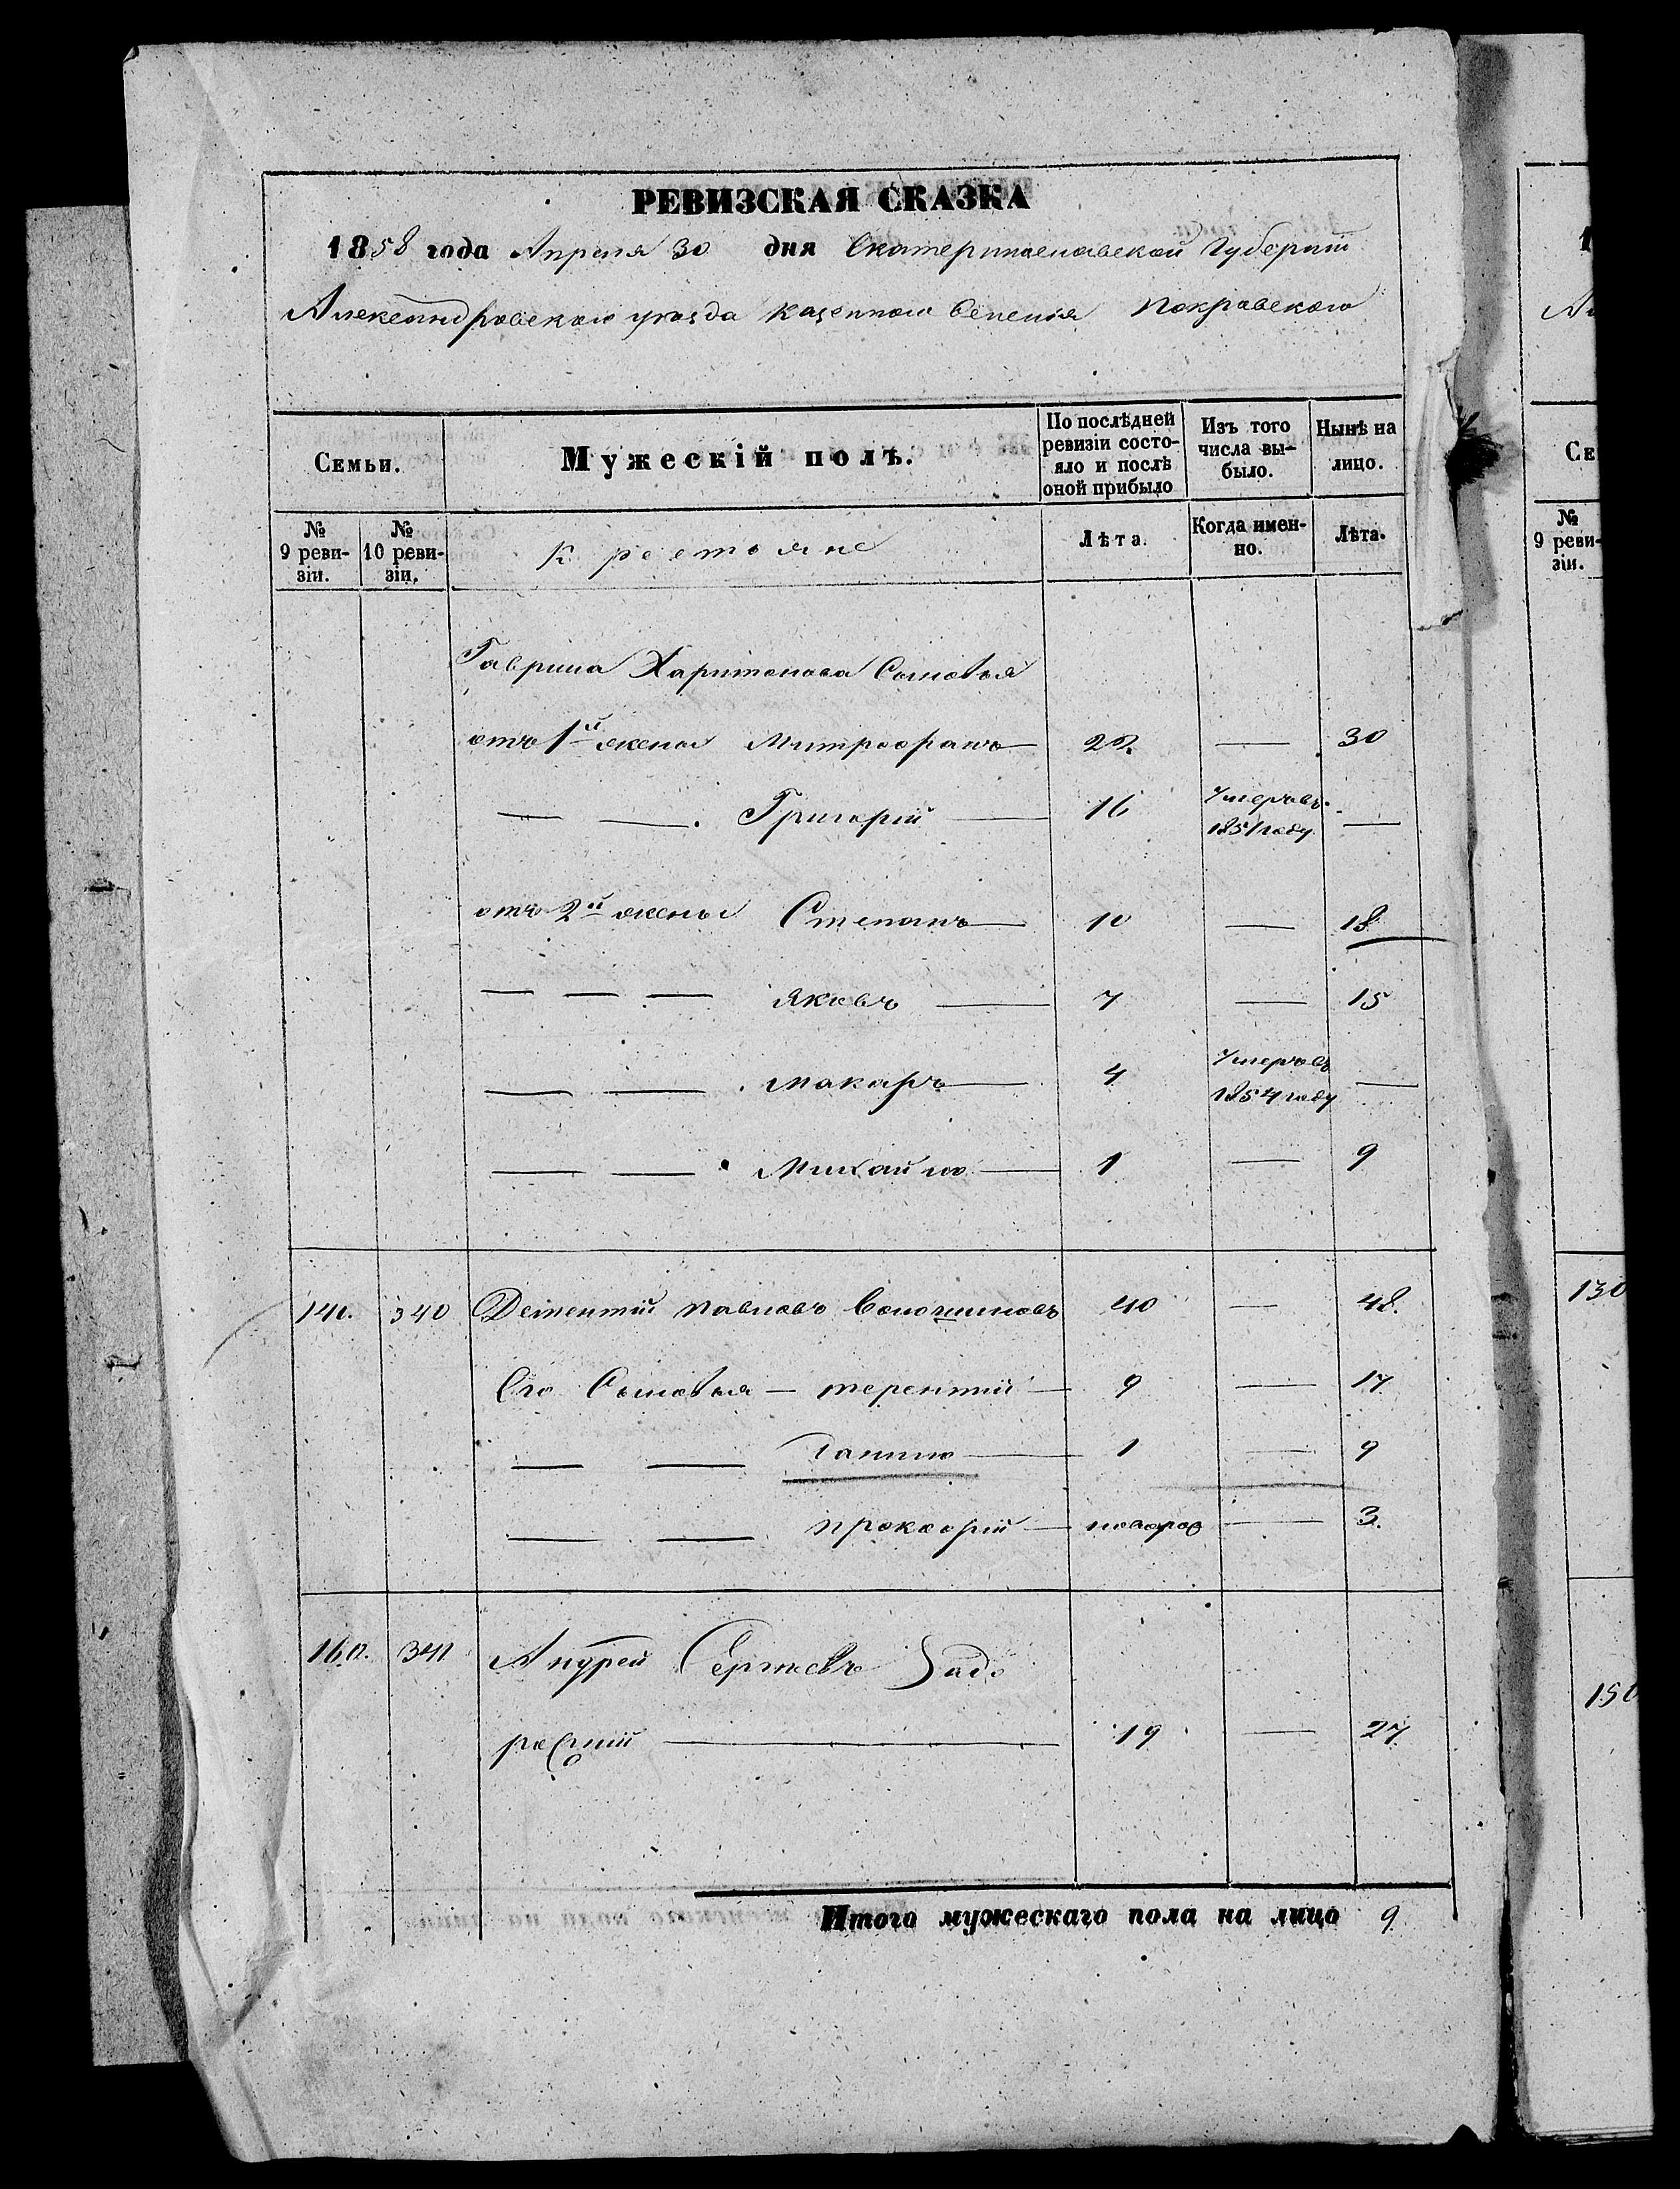 РЕВИЗСКАЯ СКАЗКА
1858 года Апреля 30 дня Екатеринославской Губерніи
Александровского уезда Казенного Селенія Покровского
Семьи.
Мужескій полъ.
По послѣдней ревизіи состояло и послѣ оной прибыло
Изъ того числа выбыло.
Нынѣ на лицо.
№ 9 ревизіи.
№ 10 ревизіи.
Крестьяне
Лѣта.
Когда именно.
Лѣта.
Гаврила Харитонова Сыновья
отъ 1й жены Митрофанъ — 22. — 30
— — Григорій — 16 Умеръ въ 1851 году —
отъ 2й жены Степанъ — 10 — 18
— — — Яковъ — 7 — 15
— — Макаръ — 4 Умеръ въ 1854 году —
— — Михайло — 1 — 9
140. 340 Дементий Павловъ Волошиновъ 40 — 48.
Его Сыновья — Терентий — 9 — 17
— — Данило — 1 — 9
— — Прокофий — новоро — 3.
160. 341 Андрей Сергеевъ Задо
рожний — 19 — 27
Итого мужескаго пола на лицо 9
1
А
Се
№
9 реви-
зіи.
130
150